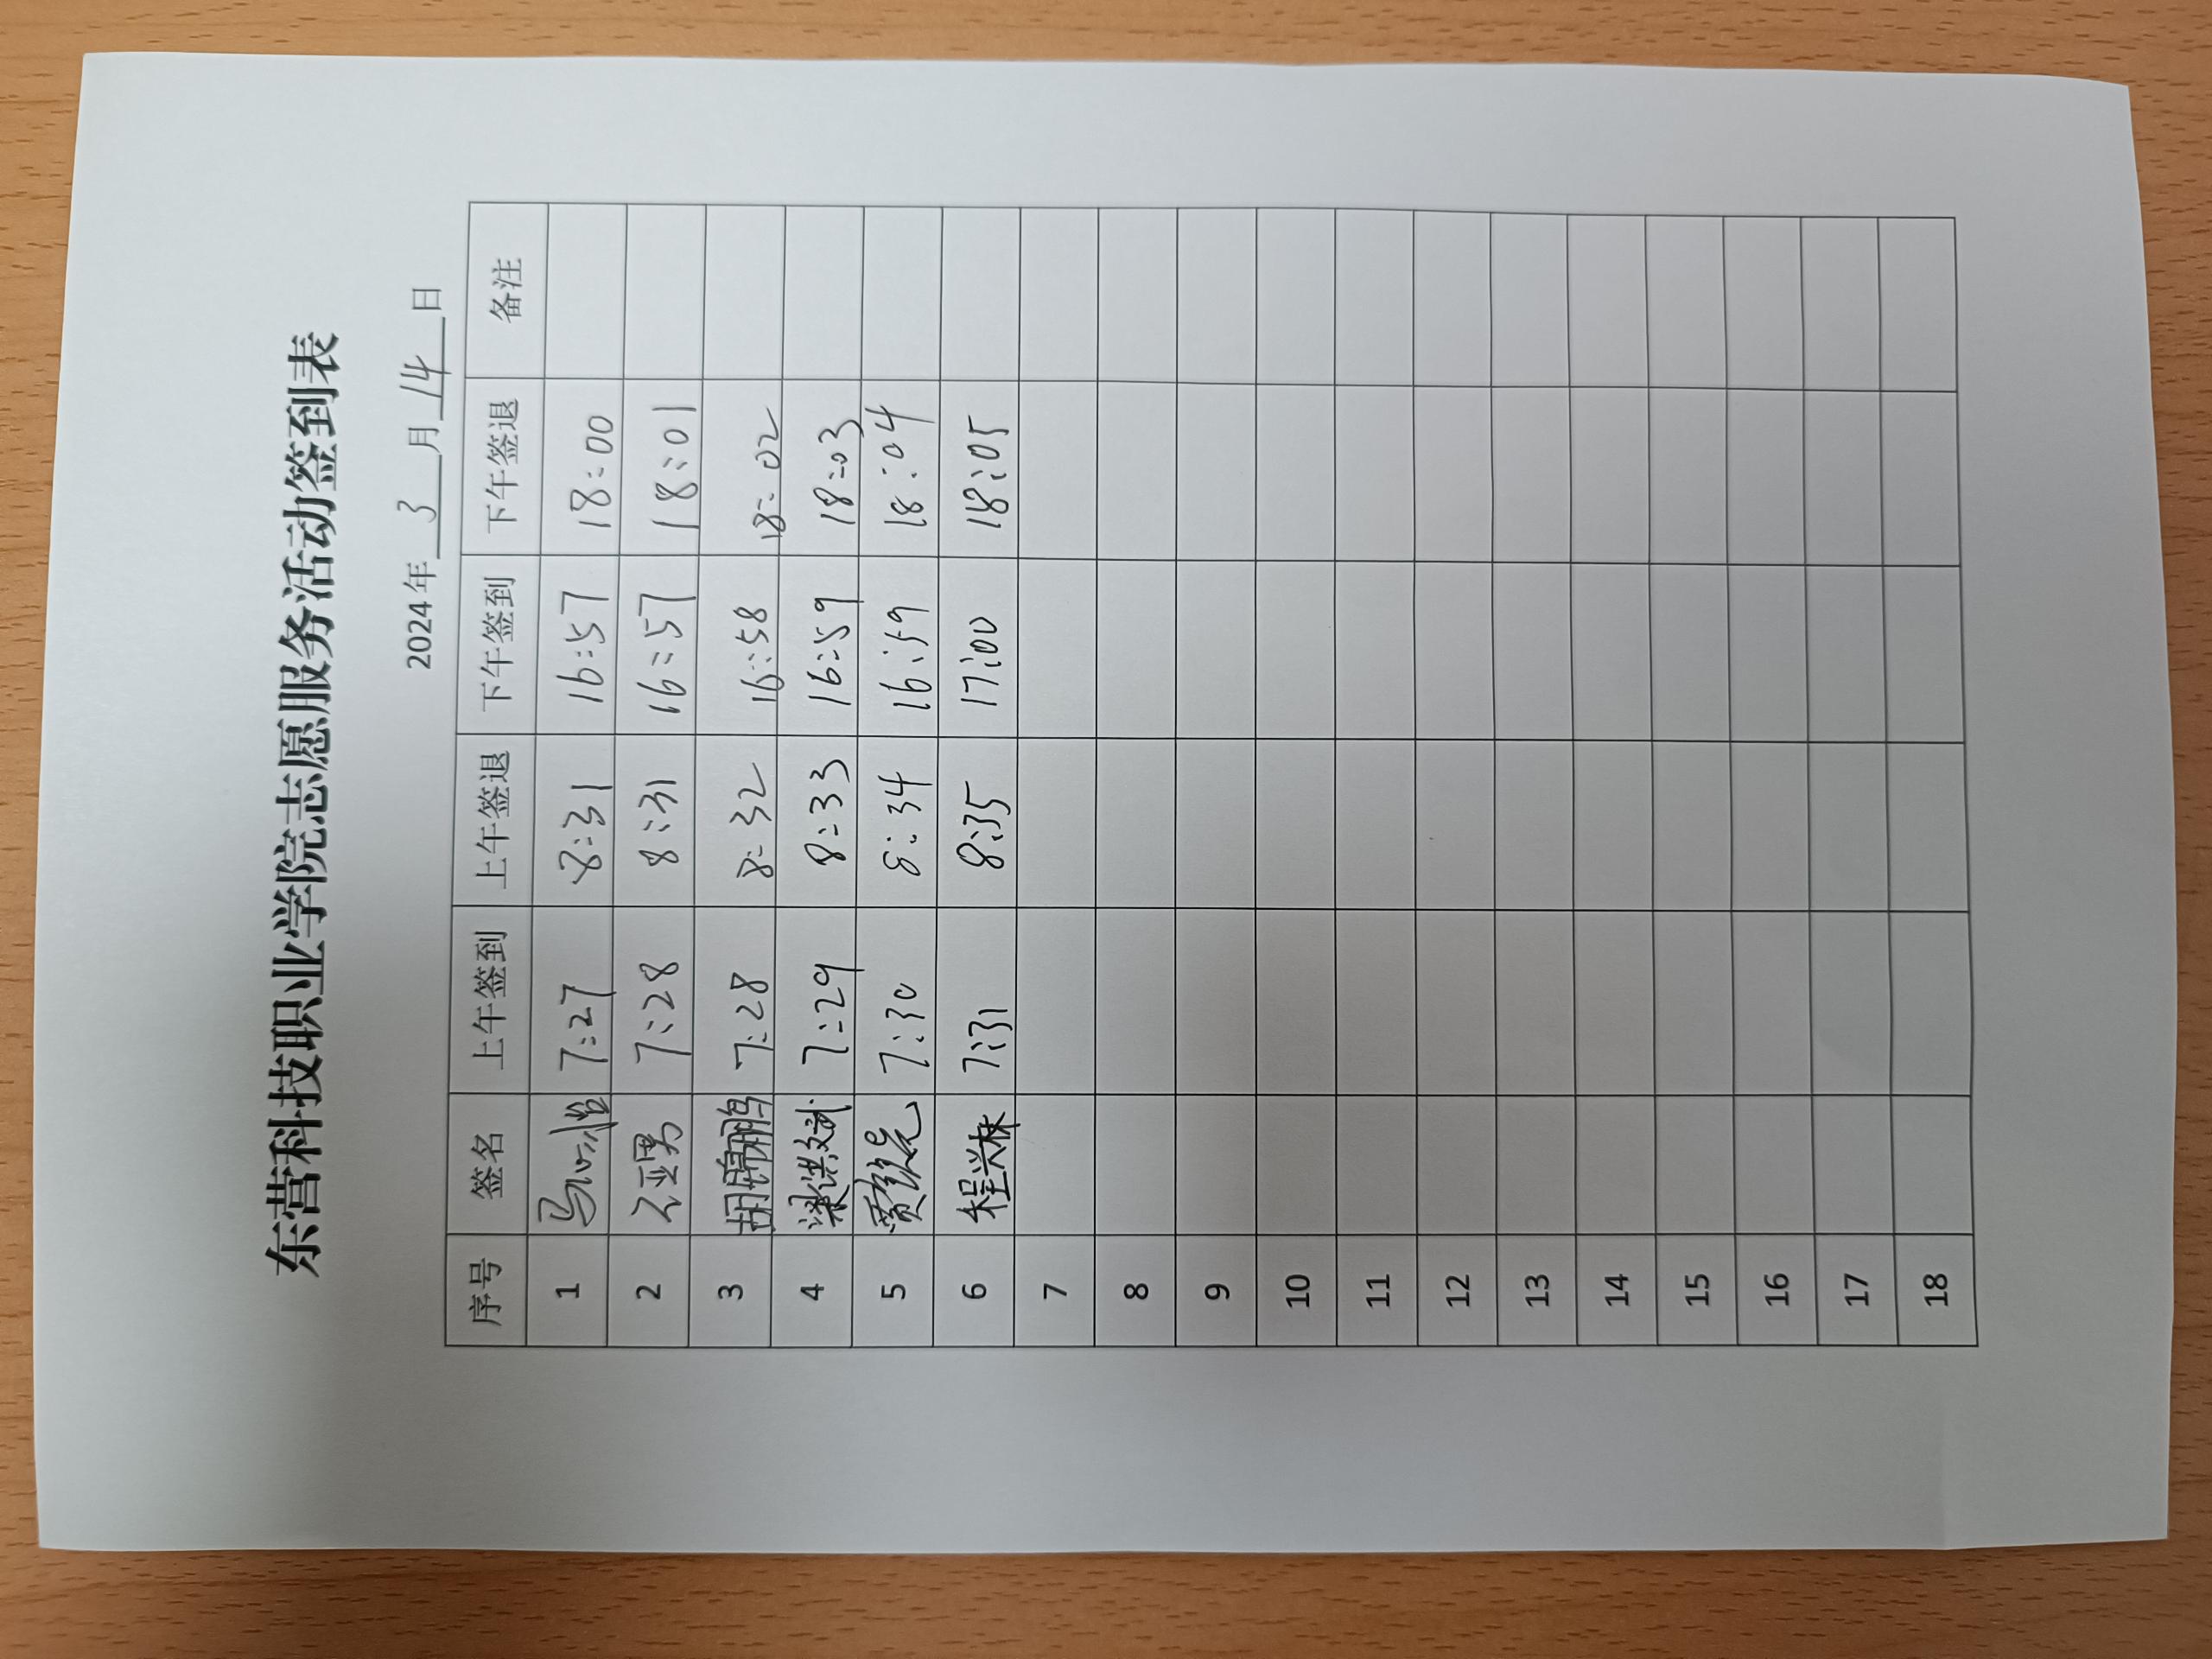 东营科技职业学院志愿服务活动签到表
2024年 3 月 14 日
序号 签名 上午签到 上午签退 下午签到 下午签退 备注
1 7:27 8:31 16:57 18:00
2 亚男 7:28 8:31 16:57 18:01
3 胡锦鹏 7:28 8:32 16:58 18:02
4 梁洪斌 7:29 8:33 16:59 18:03
5 7:30 8:34 16:59 18:04
6 程兴林 7:31 8:35 17:00 18:05
7
8
9
10
11
12
13
14
15
16
17
18